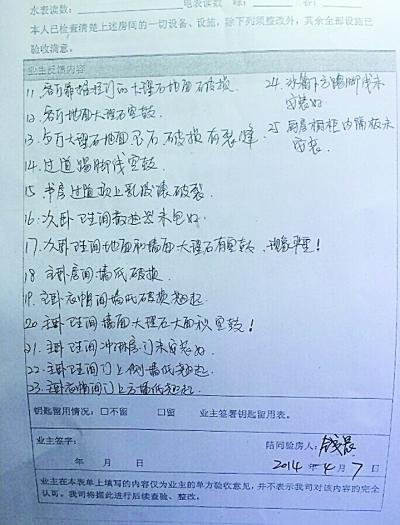 水表读数：　电表读数　峰：　谷：
本人已检查清楚上述房间的一切设备、设施，除下列须整改外，其余全部设施已
验收满意。
业主反馈内容
11. 客厅靠推拉门的大理石地面破损
12. 客厅地面大理石空鼓
13. 客厅大理石地面 破损有裂缝
14. 过道踢脚线空鼓
15. 书房过道顶上乳胶漆破裂
16. 次卧卫生间散热器未包好
17. 次卧卫生间地面和墙面大理石有空鼓、现象严重！
18 主卧房间墙纸破损
19. 主卧衣帽间墙纸破损翘起
20 主卧卫生间墙面大理石大面积空鼓！
21. 主卧卫生间冲淋房门未安装好
22. 主卧卫生间门上侧墙纸翘起
23. 主卧衣帽间门上方墙纸翘起
24. 冰箱下方踢脚线未
安装好
25 厨房橱柜内隔板未
安装.
钥匙留用情况：□不留　□留　业主签署钥匙留用表。
业主签字：　陪同验房人：
年　月　日　2014年4月7日
业主在本表单上填写的内容仅为业主的单方验收意见，并不表示我司对该内容的完全
认可。我司将据此进行后续查验、整改。